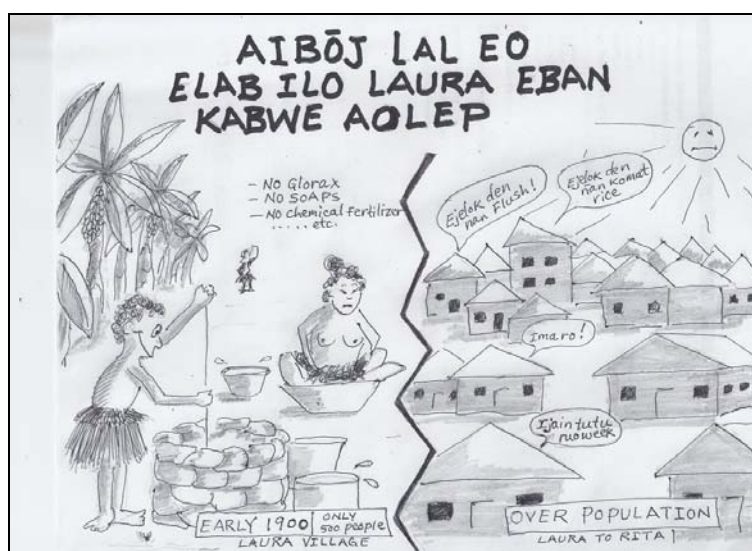 AIBŌJ LAL EO
ELAB ILO LAURA EBAN
KABWE AOLEP
- NO Glorax
- NO SOAPS
- NO chemical fertilizer
..... etc.
Ejelok den
nan Flush!
Ejelok den
nan komat
rice
Imaro!
Ijain tutu
ruo week
EARLY 1900
ONLY
500 people
LAURA VILLAGE
OVER POPULATION
LAURA TO RITA